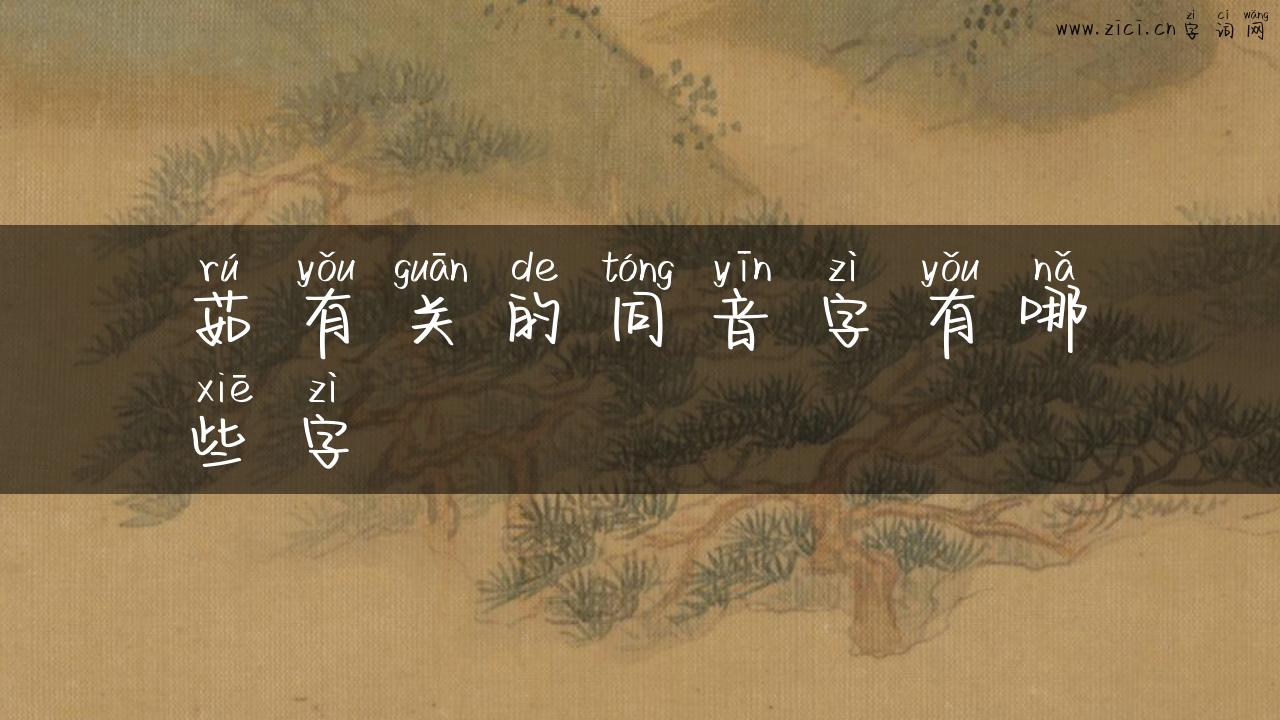 zì cí wǎng
www.zīcī.cn 字词网
rú yǒu guān de tóng yīn zì yǒu nǎ
茹有关的同音字有哪
xiē zì
些字